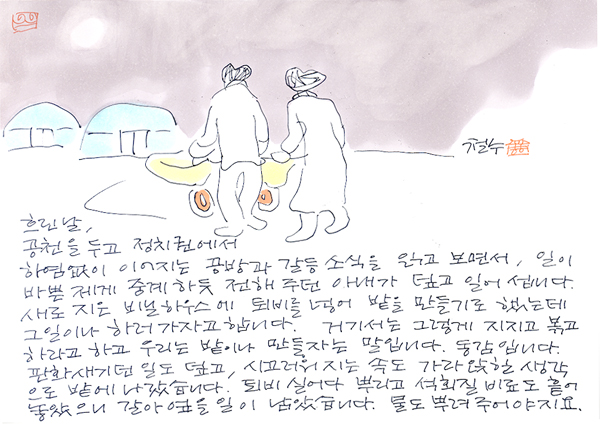 철수
흐린날,
공천을 두고 정치권에서
하염없이 이어지는 공방과 갈등 소식을 읽고 보면서, 일이
바쁜 제게 중계하듯 전해 주던 아내가 덮고 일어 섭니다.
새로 지은 비닐하우스에 퇴비를 넣어 밭을 만들기로 했는데
그일이나 하러 가자고 합니다. 거기서는 그렇게 지지고 볶고
하라고 하고 우리는 밭이나 만들자는 말입니다. 동감입니다.
판화새기던 일도 덮고, 시끄러워지는 속도 가라앉힐 생각
으로 밭에 나갔습니다. 퇴비 실어다 뿌리고 석회질 비료도 흩어
놓았으니 갈아엎을 일이 남았습니다. 물도 뿌려 주어야지요.